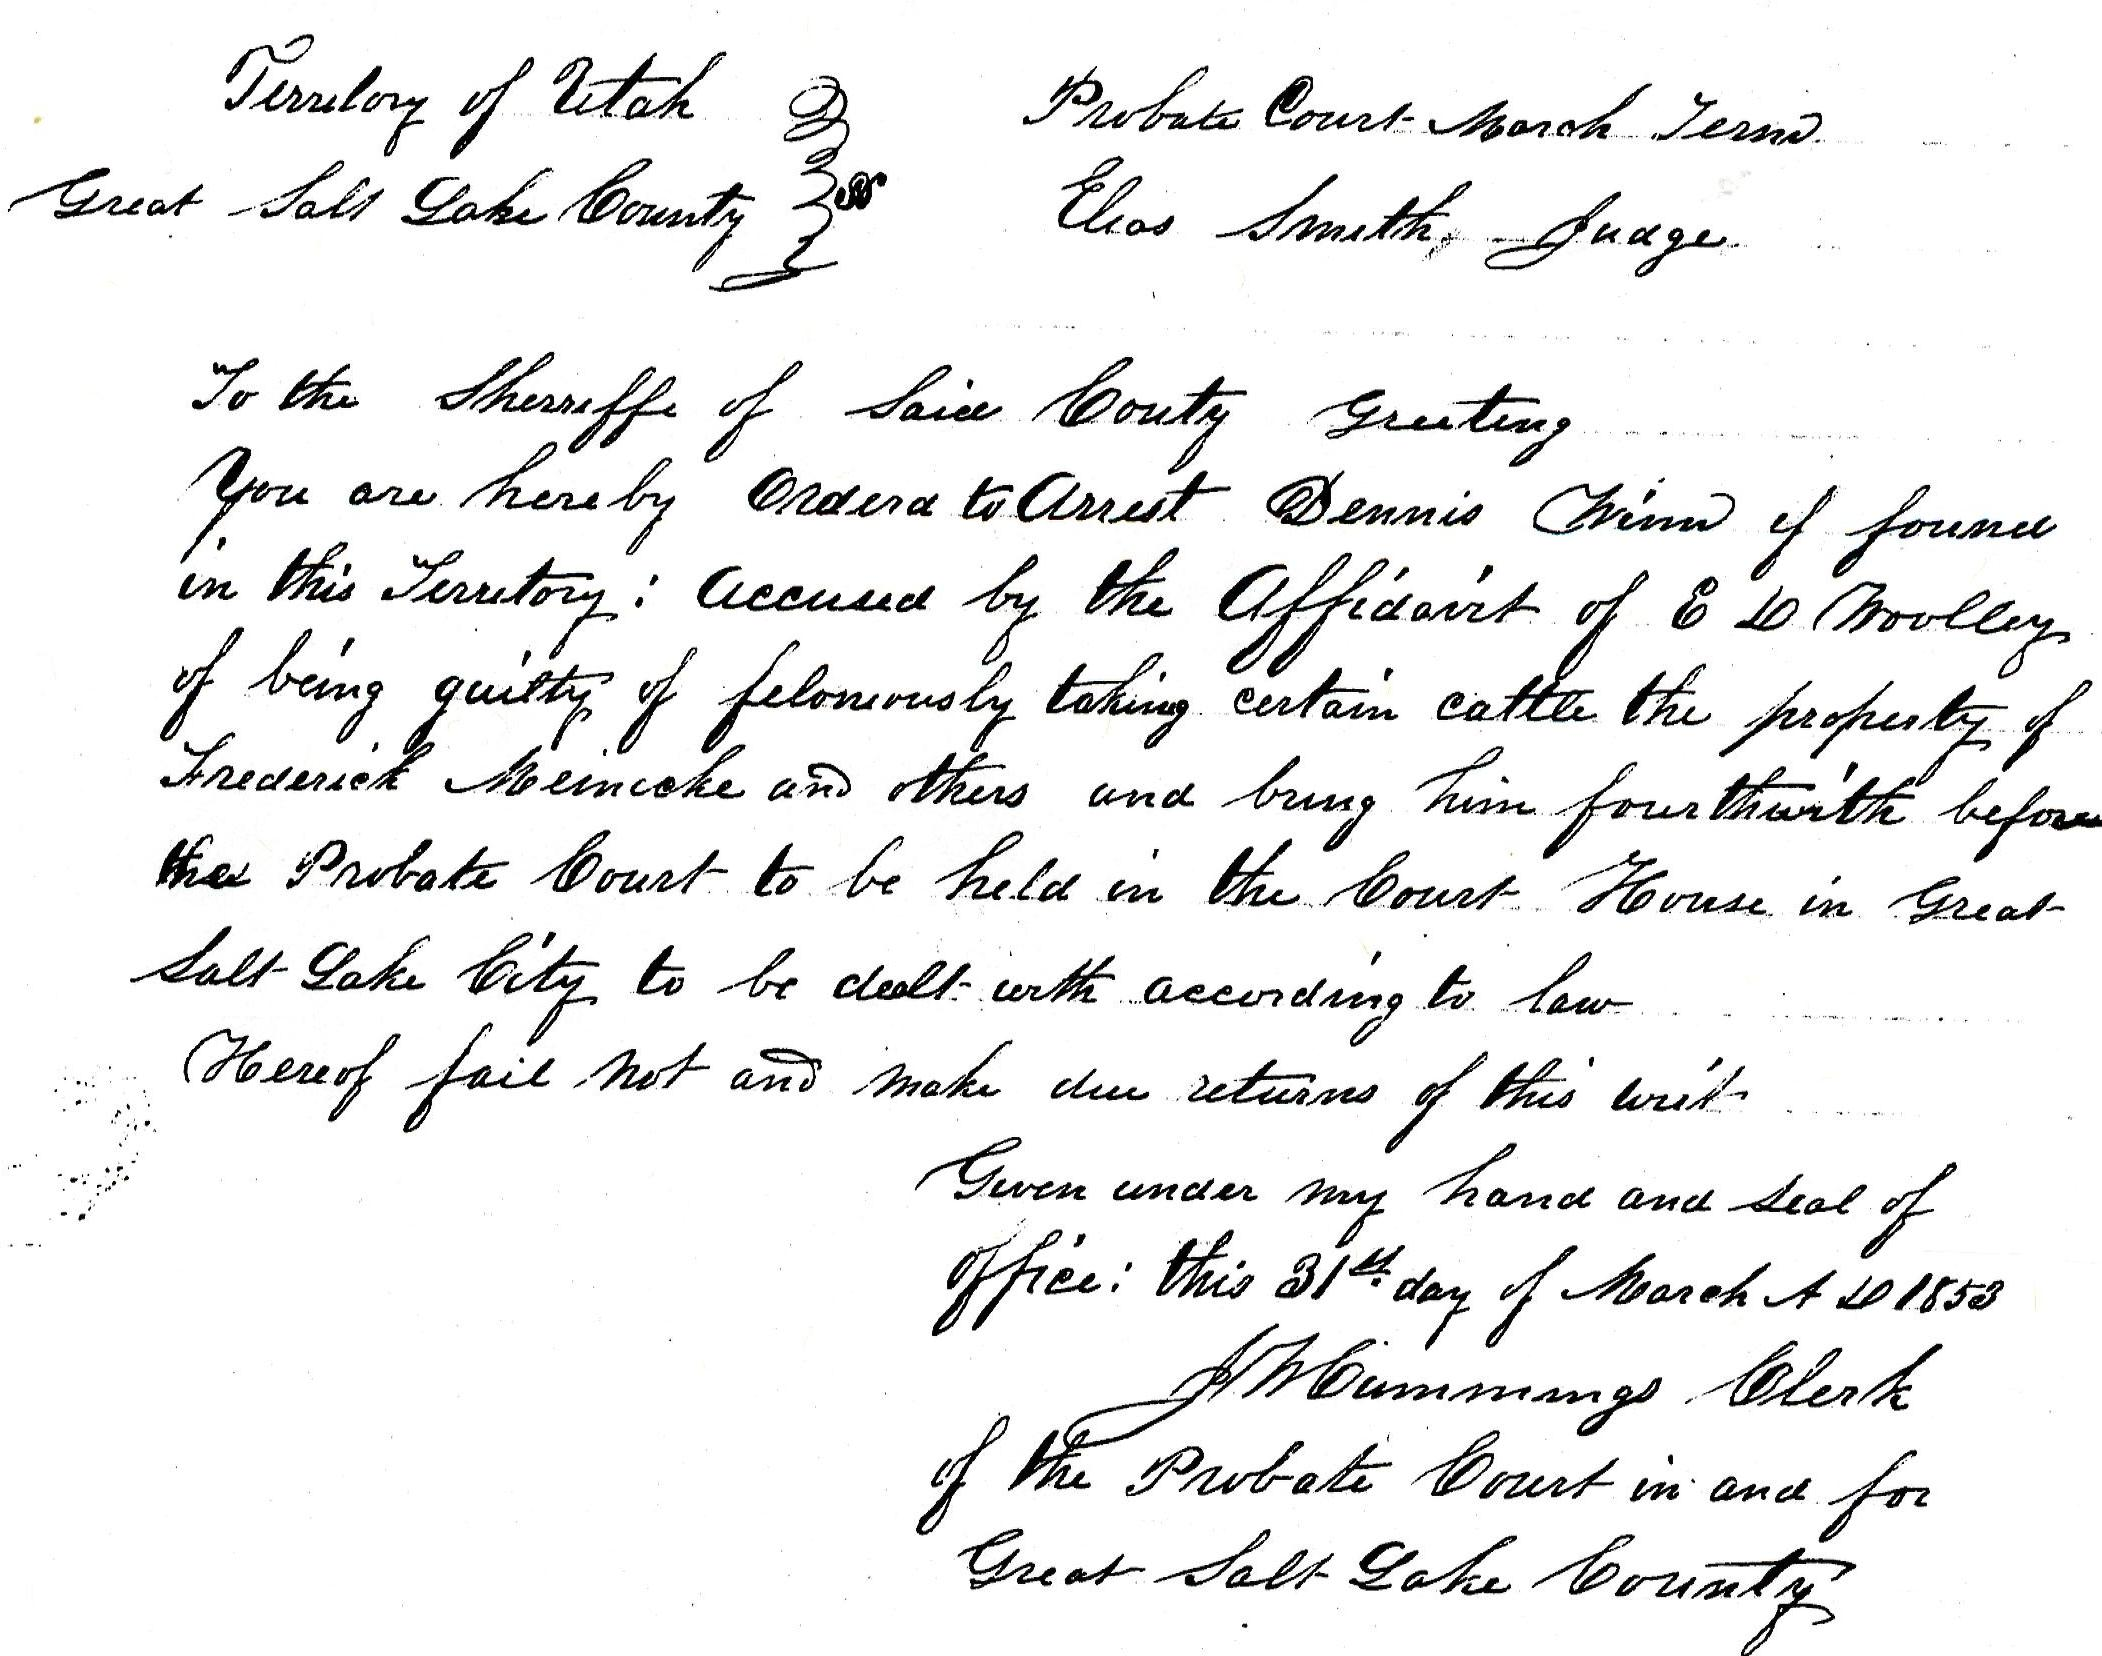 Territory of Utah } ss Probate Court March Term
Great Salt Lake County } Elias Smith, Judge
To the Sherriffe of Said Couty Greeting
You are hereby Orderd to Arrest Dennis Winn if found
in this Territory: Accused by the Affidavit of E D Woolley
of being guilty of feloniously taking certain cattle the property of
Frederick Meinicke and others and bring him fourthwith before
the Probate Court to be held in the Court House in Great
Salt Lake City to be dealt with according to law
Hereof fail not and make due returns of this writ
Given under my hand and seal of
office: this 31st day of March A D 1853
J W Cummings Clerk
of the Probate Court in and for
Great Salt Lake County